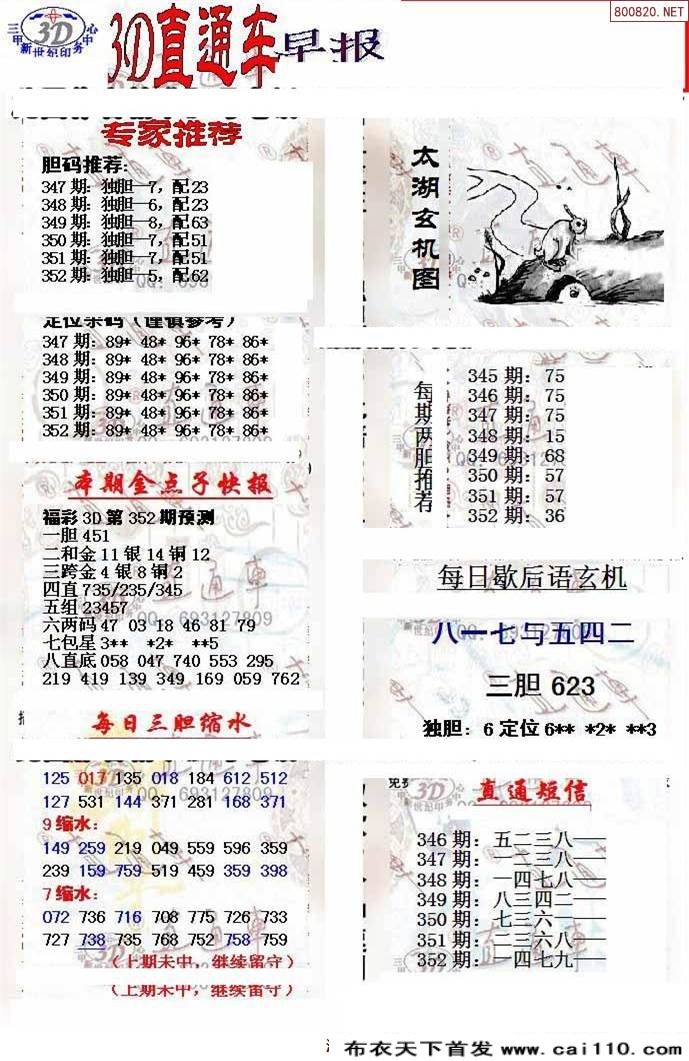 800820.NET
三甲 3D 中心
新世纪印务
3D直通车早报
专家推荐
胆码推荐:
347期: 独胆—7, 配23
348期: 独胆—6, 配23
349期: 独胆—8, 配63
350期: 独胆—7, 配51
351期: 独胆—7, 配51
352期: 独胆—5, 配62
定位杀码（谨慎参考）
347期: 89* 48* 96* 78* 86*
348期: 89* 48* 96* 78* 86*
349期: 89* 48* 96* 78* 86*
350期: 89* 48* 96* 78* 86*
351期: 89* 48* 96* 78* 86*
352期: 89* 48* 96* 78* 86*
本期金点子快报
福彩3D第352期预测
一胆451
二和金11银14铜12
三跨金4银8铜2
四直735/235/345
五组23457
六两码47 03 18 46 81 79
七包星3** *2* **5
八直底058 047 740 553 295
219 419 139 349 169 059 762
每日三胆缩水
125 017 135 018 184 612 512
127 531 144 371 281 168 371
9缩水:
149 259 219 049 559 596 359
239 159 759 519 459 359 398
7缩水:
072 736 716 708 775 726 733
727 738 735 768 752 758 759
（上期未中，继续留守）
（上期未中，继续留守）
太湖玄机图
每期两胆推荐
345期: 75
346期: 75
347期: 75
348期: 15
349期: 68
350期: 57
351期: 57
352期: 36
每日歇后语玄机
八一七与五四二
三胆 623
独胆: 6 定位 6** *2* **3
直通短信
346期: 五二三八——
347期: 一二三八——
348期: 一四七八——
349期: 八三四二——
350期: 七三六一——
351期: 二三六八——
352期: 一四七九——
布衣天下首发 www.cai110.com